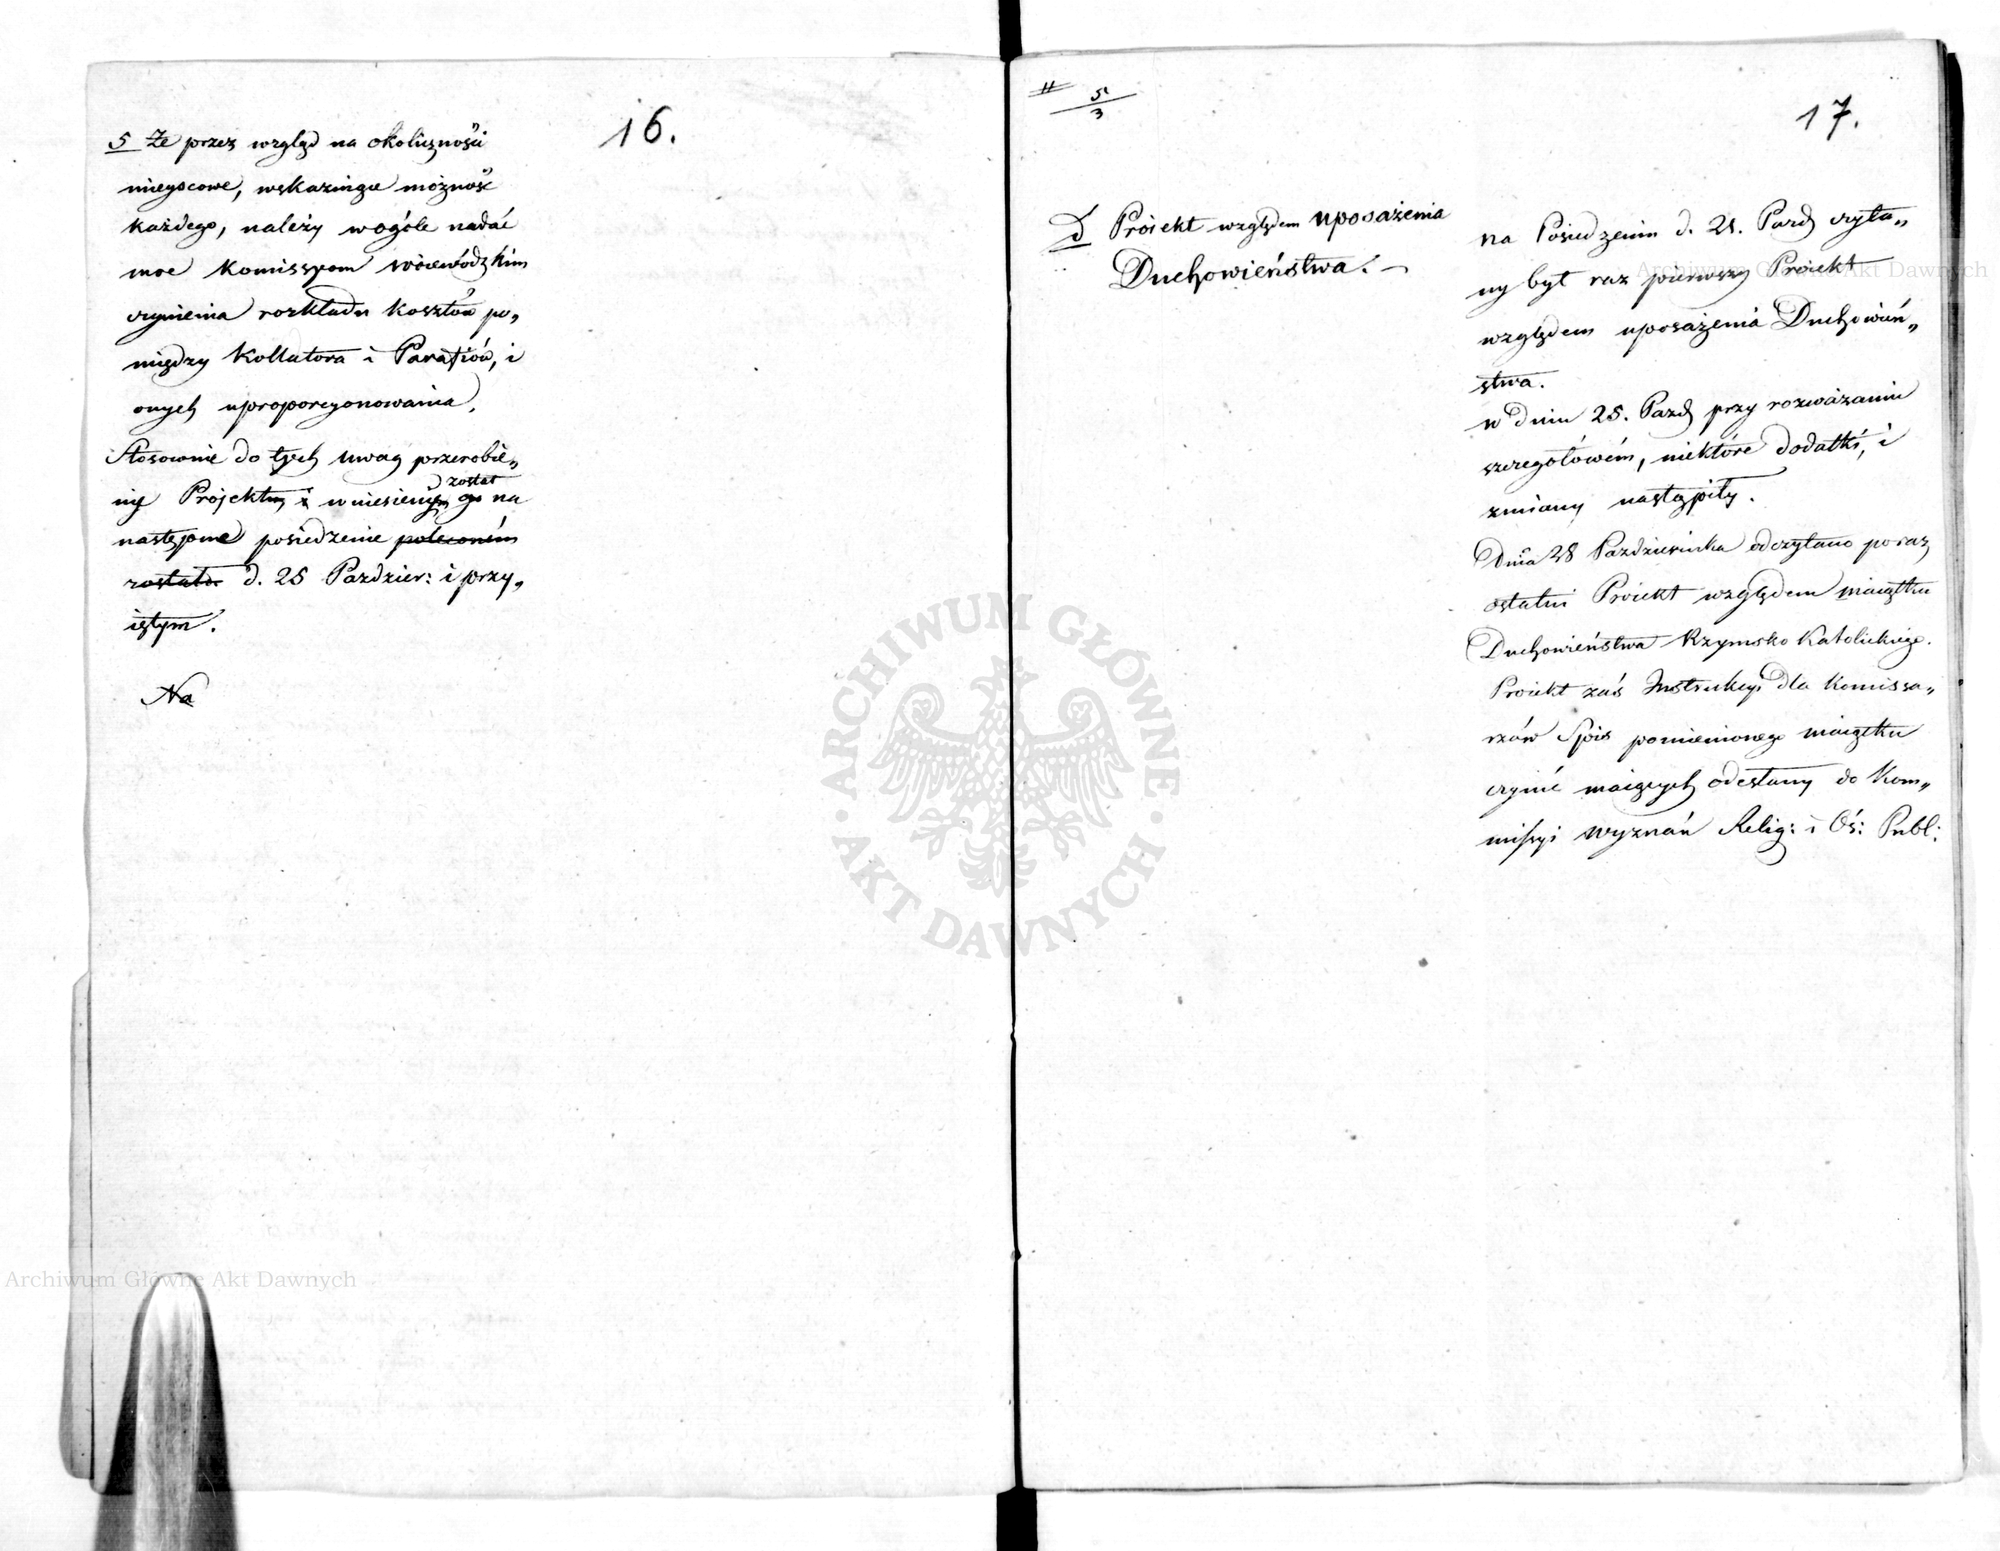 16.
5 Że przez wzgląd na okoliczności
mieyscowe, wskazuiące możność
każdego, należy wogóle nadać
moc Komissyom Woiewódzkim
czynienia rozkładu kosztów po„
między Kollatora i Parafiów, i
onych uproporcyonowania.
Stosownie do tych uwag przerobio„
ny Projekt wniesiony został na
następne posiedzenie poleconém
zostało d. 25 Pazdzier: i przy„
iętym.
Na
# 5/3
17.
d Proiekt względem uposażenia
Duchowieństwa. —
na Posiedzeniu d. 21. Pazd czyta„
ny był raz pierwszy Proiekt
względem uposażenia Duchowień„
stwa.
w dniu 25. Pazd przy rozważaniu
szczegółowém, niektóre dodatki, i
zmiany nastąpiły.
Dnia 28 Pazdziernika odczytano po raz
ostatni Proiekt względem maiątku
Duchowieństwa Rzymsko Katolickiego.
Proiekt zaś Instrukcyi dla Komissa„
rzów Spis pomienionego maiątku
czynić maiących odesłany do Kom„
missyi Wyznań Relig: i Oś: Publ:
ARCHIWUM GŁÓWNE · AKT DAWNYCH ·
Archiwum Główne Akt Dawnych
Archiwum Główne Akt Dawnych